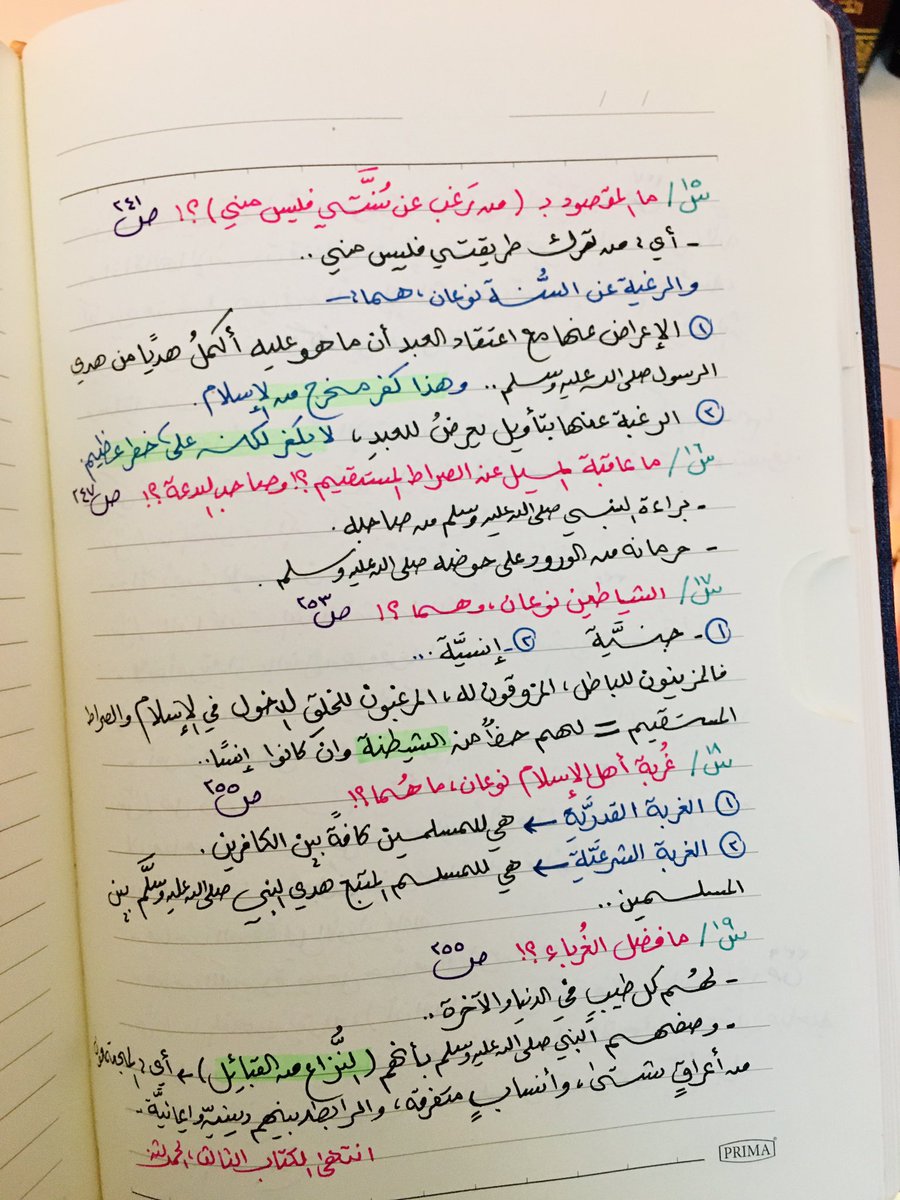 / /
س١٥/ ما المقصود بـ (من رَغب عن سُنَّتي فليس مني)؟! ص٢٤١
- أي: من ترك طريقتي فليس مني..
والرغبة عن السُّنة نوعان، هما:-
① الإعراض عنها مع اعتقاد العبد أن ما هو عليه أكملُ هديًا من هدي
الرسول صلى الله عليه وسلم.. وهذا كفر مخرج من الإسلام.
② الرغبة عنها بتأويل يعرضُ للعبدِ، لا يكفر لكنه على خطر عظيم.
س١٦/ ما عاقبة الميل عن الصراط المستقيم؟! وصاحب البدعة؟! ص٢٤٧
- براءة النبي صلى الله عليه وسلم من صاحبه.
- حرمانه من الورود على حوضه صلى الله عليه وسلم.
س١٧/ الشياطين نوعان، وهما؟! ص٢٥٣
①- جنيَّة ②- إنسيَّة...
فالمزينون للباطل، المزوقون له، المرغبون للخلقِ الدخول في الإسلام والصراط
المستقيم = لهم حظًا من الشيطنة وان كانوا إنسًا..
س١٨/ غُربة أهل الإسلام نوعان، ما هُما؟! ص٢٥٥
① الغربة القدريَّة ← هي للمسلمين كافةً بين الكافرين.
② الغربة الشرعيَّة ← هي للمسلم المتبع هدي النبي صلى الله عليه وسلَّم بين
المسلمين..
س١٩/ ما فضل الغُرباء؟! ص٢٥٥
- لهُم كل طيبٍ في الدنيا والآخرة..
- وصفهم النبي صلى الله عليه وسلم بأنهم (النُّزاع من القبائل) ← أي:
من أعراقٍ شتى، وأنسابٍ متفرقة، والرابط بينهم دينيةً وإيمانيَّة..
انتهى الكتاب الثالث، الحمدلله
PRIMA